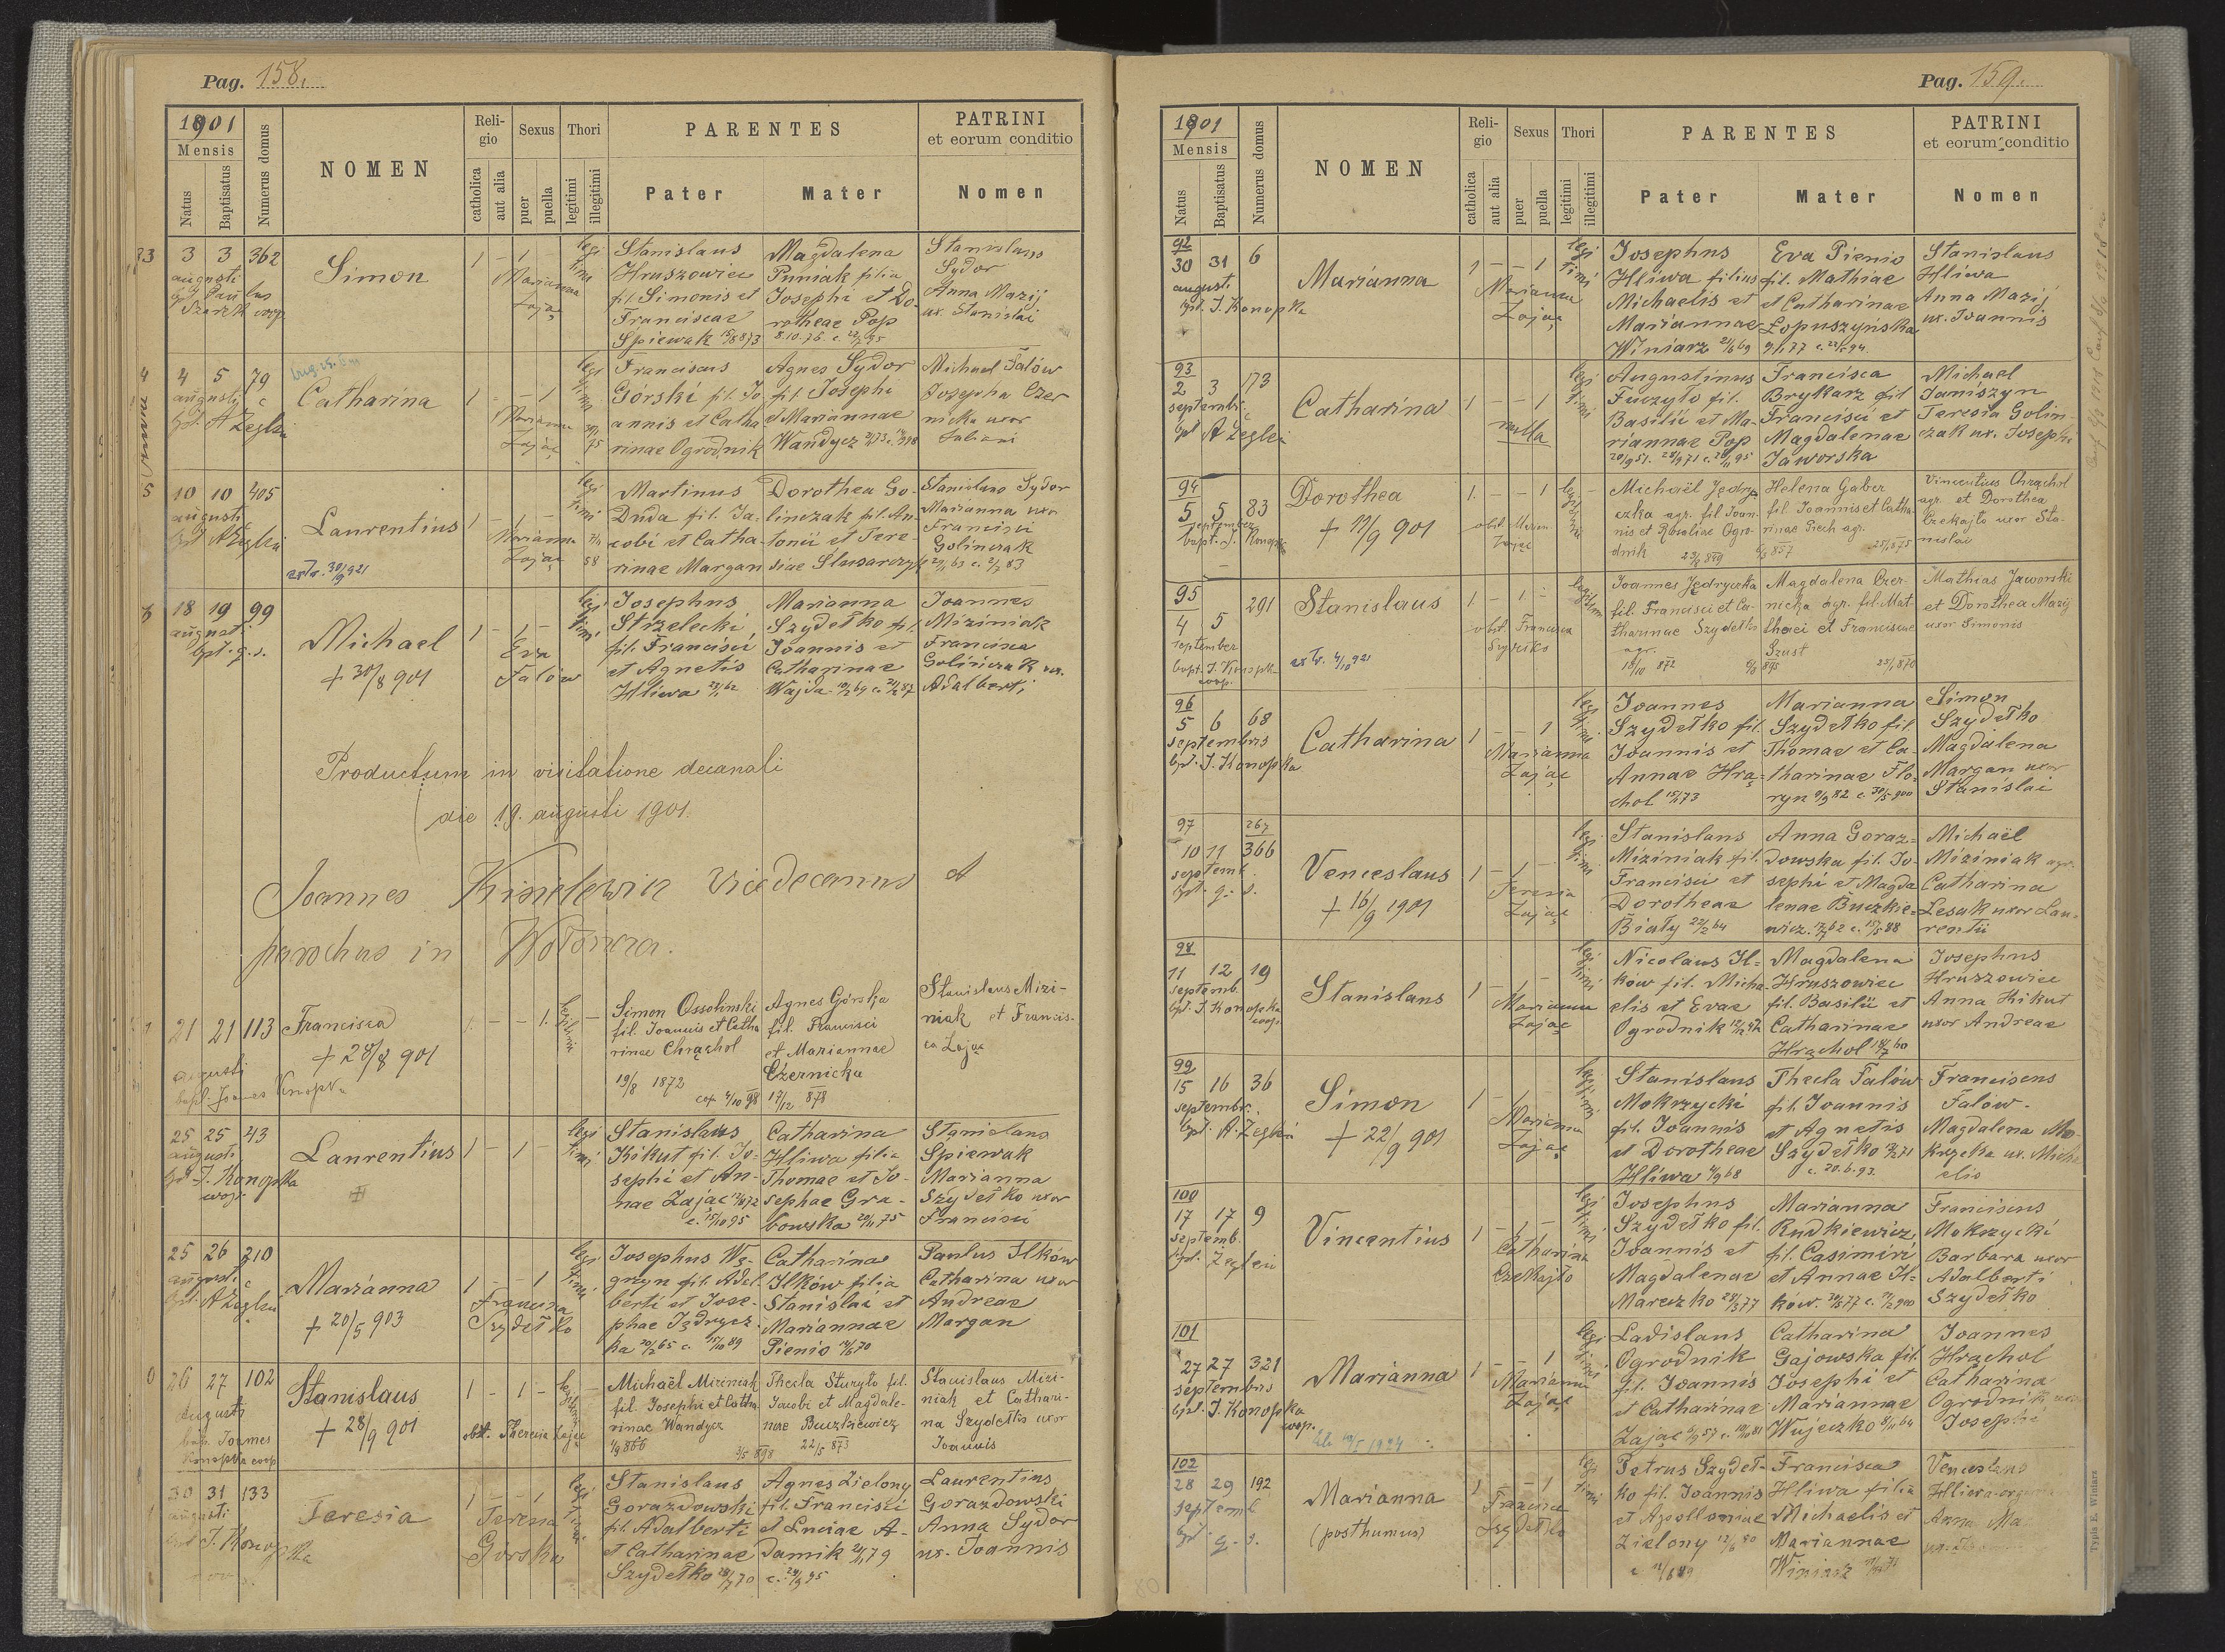 Pag. 158.
1901
Mensis
Natus
Baptisatus
Numerus domus
NOMEN
Reli-
gio
catholica
aut alia
Sexus
puer
puella
Thori
legitimi
illegitimi
PARENTES
Pater
Mater
PATRINI
et eorum conditio
Nomen
83
3 3 362
augusti
Simon
1 - 1 -
Marianna
Zając
legi
timi
Stanislaus
Hruszowiec
fil. Simonis et
Franciscae
Śpiewak
Magdalena
Puniak filia
Josephi et Do-
rotheae Pop
Stanislaus
Sydor
Anna Mazij
ux. Stanislai
4
4 5 79
augusti
bpt. A Żeglei
Catharina
1 - - 1
Marianna
Zając
legi
timi
Franciscus
Górski fil. Jo
annis et Catha
rinae Ogrodnik
Agnes Sydor
fil. Josephi
et Mariannae
Wandycz
Michael Fałów
Josepha Czer
nicka uxor
5
10 10 405
augusti
bpt A Żeglei
Laurentius
30/9 921
1 - 1 -
Marianna
Zając
legi
timi
Martinus
Duda fil. Ja-
cobi et Catha-
rinae Margan
Dorothea Go-
linczak fil. An-
tonii et Tere-
siae Ślusarczyk
Stanislaus Sydor
Marianna uxor
Francisci
Golinczak
18 19 99
augusti
bpt. q. s.
Michael
+ 30/8 901
1 - 1 -
Eva
Fałów
legi
timi
Josephus
Strzelecki
fil. Francisci
et Agnetis
Hliwa
Marianna
Szydełko fil.
Joannis et
Catharinae
Wajda
Joannes
Miziniak
Francisca
Golińczak ux.
Adalberti
Productum in visitatione decanali
die 19. augusti 1901.
Joannes Vicedecanus et
parochus in
21 21 113
augusti
bapt. Joannes Konopka
Francisca
+ 28/8 901
1. - - 1.
Simon Ossoliński
fil. Joannis et Catha
rinae Chrąchol
19/8 1872
Agnes Górska
fil. Francisci
et Mariannae
Czernicka
17/12 878
Stanislaus Mizi-
niak et Francis-
ca Zając
25 25 43
augusti
bpt J. Konopka
coop.
Laurentius
1 - 1 -
legi
timi
Stanislaus
Kikut fil. Jo-
sephi et An-
nae Zając
Catharina
Hliwa filia
Thomae et Jo-
sephae Gra-
bowska
Stanislaus
Śpiewak
Marianna
Szydełko uxor
Francisci
25 26 210
augusti
bpt A Żeglei
Marianna
+ 20/5 903
1 - - 1
Francisca
Szydełko
legi
timi
Josephus Wę-
grzyn fil. Adal-
berti et Jose-
phae Jędrycz
ka
Catharina
Ilków filia
Stanislai et
Mariannae
Pienio
Paulus Ilków
Catharina uxor
Andreae
Margan
26 27 102
augusti
bap. Joannes
Konopka coop
Stanislaus
+ 28/9 901
1 - 1 -
obst. Theresia Zając
Michaël Miziniak
fil. Josephi et Catha
rinae Wandycz
Thecla Sturyło fil.
Jacobi et Magdale-
nae Buczkiewicz
22/5 873
Stanislaus Mizi-
niak et Cathari-
na Szydełko uxor
Joannis
30 31 133
augusti
bpt J. Konopka
Teresia
1 - - 1
Teresia
Górska
legi
timi
Stanislaus
Gorazdowski
fil. Adalberti
et Catharinae
Szydełko
Agnes Zielony
fil. Francisci
et Luciae A-
damik
Laurentius
Gorazdowski
Anna Sydor
ux. Joannis
Pag. 159.
1901
Mensis
Natus
Baptisatus
Numerus domus
NOMEN
Reli-
gio
catholica
aut alia
Sexus
puer
puella
Thori
legitimi
illegitimi
PARENTES
Pater
Mater
PATRINI
et eorum conditio
Nomen
92
30 31 6
augusti
bpt. J. Konopka
Marianna
1 - - 1
Marianna
Zając
legi
timi
Josephus
Hliwa filius
Michaelis et
Mariannae
Winiarz
Eva Pienio
fil. Mathiae
et Catharinae
Łopuszyńska
Stanislaus
Hliwa
Anna Mazij
ux. Joannis
93
2 3 173
septembr.
bpt A Żeglei
Catharina
1 - - 1
nulla
legi
timi
Augustinus
Fuczyło fil.
Basilii et Ma-
riannae Pop
Francisca
Brykarz fil
Francisci et
Magdalenae
Jaworska
Michael
Janiszyn
Teresia Golin-
czak ux. Josephi
94
5 5 83
september
bapt. J. Konopka
Dorothea
+ 17/9 901
1. - - 1
obst. Marian.
Zając
Michaël Jędry-
czka agr. fil Joan-
nis et Rosaliae Ogro-
dnik
Helena Gaber
fil. Joannis et Catha
rinae Piech agr.
Vincentius Chrąchol
agr. et Dorothea
Czekajło uxor Sta-
nislai
95
4 5 291
september
bapt. J. Konopka
coop.
Stanislaus
4/10 921
1 - 1 -
obst. Francisca
Joannes Jędryczka
fil. Francisci et Ca-
tharinae Szydełko
agr.
Magdalena Czer-
nicka agr. fil. Mat-
thaei et Franciscae
Szust
Mathias Jaworski
et Dorothea Mazij
uxor Simonis
96
5 6 68
septembris
bpt. J. Konopka
Catharina
1 - - 1
Marianna
Zając
legi
timi
Joannes
Szydełko fil.
Joannis et
Annae Hrą-
chol
Marianna
Szydełko fil.
Thomae et Ca-
tharinae Flo-
ryn
Simon
Szydełko
Magdalena
Margan uxor
Stanislai
97
10 11 366
267
septemb.
bpt. q. s.
Venceslaus
+ 16/9 1901
1 - 1 -
Teresia
Zając
legi
timi
Stanislaus
Miziniak fil.
Francisci et
Dorotheae
Biały
Anna Goraz-
dowska fil. Jo-
sephi et Magda
lenae Buczkie-
wicz
Michaël
Miziniak agr.
Catharina
Lesak uxor Lau-
rentii
98
11 12 19
septemb.
bpt. J. Konopka
coop.
Stanislaus
1 - 1 -
Marianna
Zając
legi
timi
Nicolaus Il-
ków fil. Micha-
elis et Evae
Ogrodnik
Magdalena
Hruszowiec
fil. Basilii et
Catharinae
Hrąchol
Josephus
Hruszowiec
Anna Kikut
uxor Andreae
99
15 16 36
septembr.
bpt. A. Żeglei
Simon
+ 22/9 901
1 - 1 -
Marianna
Zając
legitimi
Stanislaus
Mokrzycki
fil. Joannis
et Dorotheae
Hliwa
Thecla Fałów
fil. Joannis
et Agnetis
Szydełko
c. 20.6.93.
Franciscus
Fałów.
Magdalena Mo-
krzycka ux. Micha
elis
100
17 17 9
septemb.
bpt. Żeglei
Vincentius
1 - 1 -
Catharina
Czekajło
legi
timi
Josephus
Szydełko fil.
Joannis et
Magdalenae
Mareczko
Marianna
Rudkiewicz
fil. Casimiri
et Annae Il-
ków.
Franciscus
Mokrzycki
Barbara uxor
Adalberti
Szydełko
101
27 27 321
septembris
bpt. J. Konopka
coop.
Marianna
1 - - 1
Marianna
Zając
legi
timi
Ladislaus
Ogrodnik
fil. Joannis
et Catharinae
Zając
Catharina
Gajowska fil.
Josephi et
Mariannae
Wujeczko
Joannes
Hrąchol
Catharina
Ogrodnik uxor
Josephi
102
28 29 192
septemb
bpt q. s.
Marianna
(posthumus)
1 - - 1
Francisca
Szydełko
legi
timi
Petrus Szydeł-
ko fil. Joannis
et Apolloniae
Zielony
Francisca
Hliwa filia
Michaelis et
Mariannae
Winiarz
Venceslaus
Hliwa
Anna Ma
Typis E. Winiarz